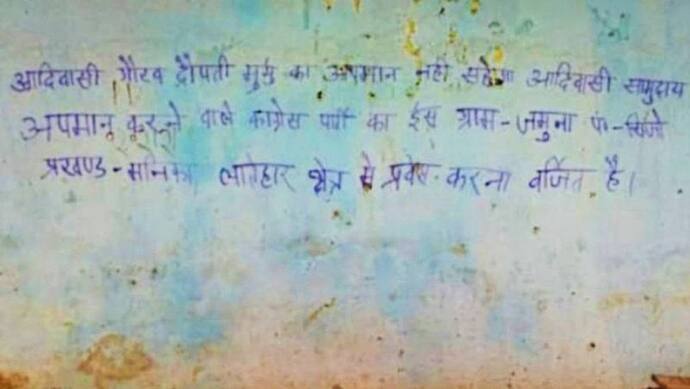 आदिवासी गौरव द्रौपती मुर्मु का अपमान नही सहेगा आदिवासी समुदाय
अपमान करने वाले कांग्रेस पार्टी का इस ग्राम-जमुना पं०-सिंजो
प्रखण्ड-मनिका लातेहार क्षेत्र मे प्रवेस करना वर्जित है।